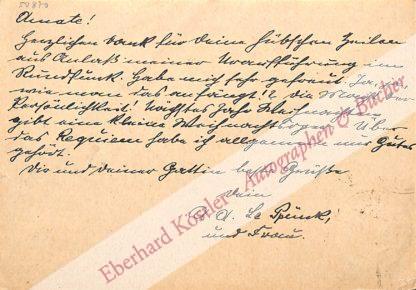 50870
Amate!
Herzlichen Dank für Deine hübschen Zeilen
aus Anlaß meiner Uraufführung im
Rundfunk. Habe mich sehr gefreut. Ja,
wie man das anfängt!? Die
Persönlichkeit! Nächstes Jahr Weihnachten
gibt eine kleine Über
das Requiem habe ich allgemein nur Gutes
gehört.
Dir und Deiner Gattin beste Grüße
Dein
und Frau.
Eberhard Köstler Autographen & Bücher